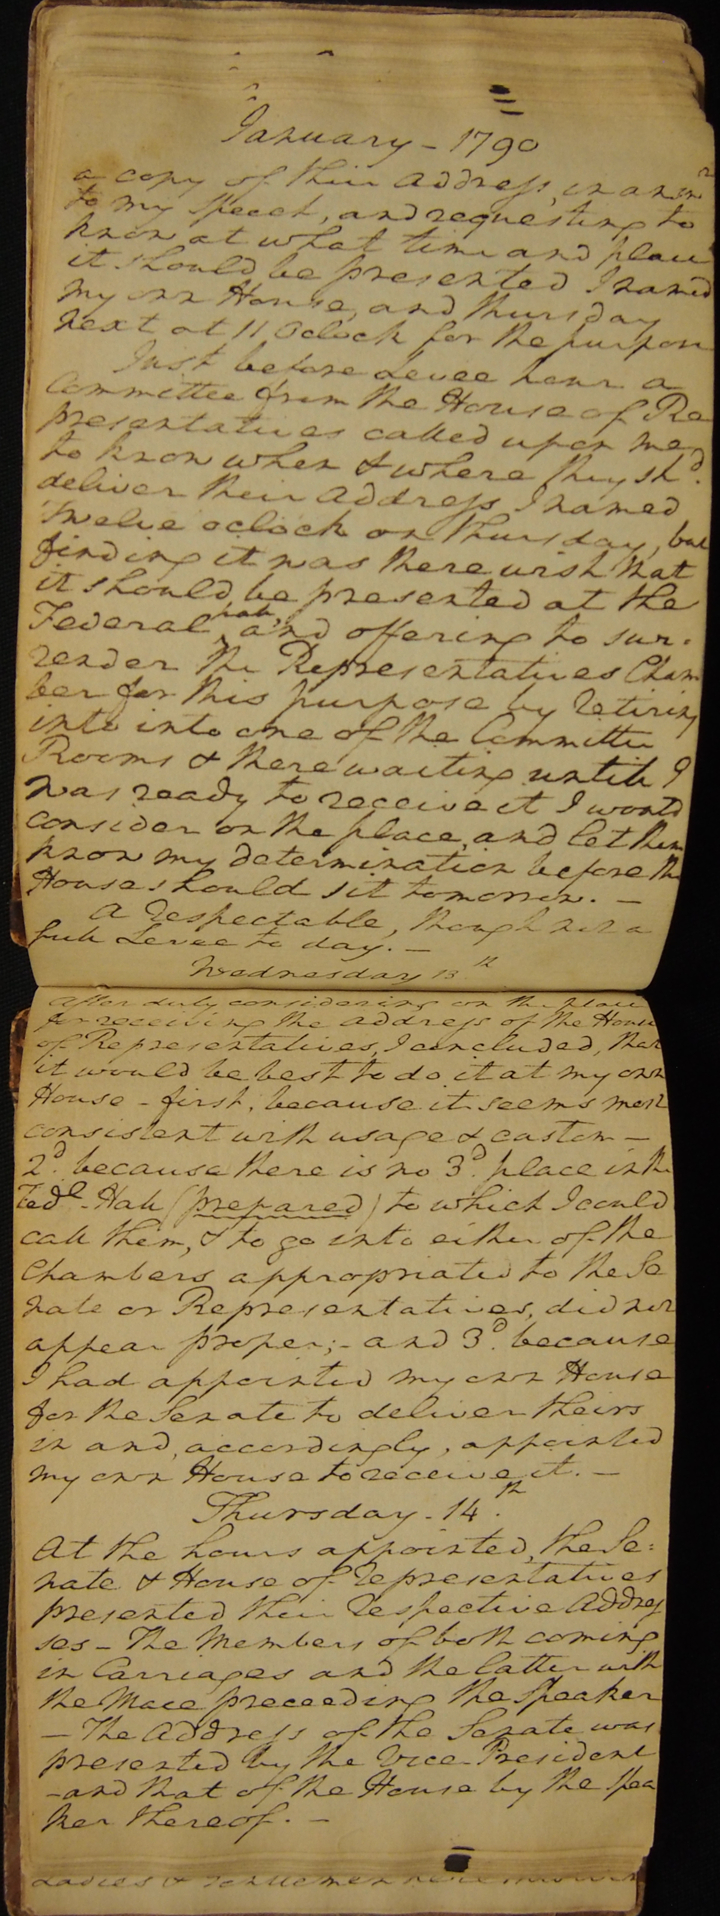 January - 1790
a copy of their address, in answr
to my speech, and requesting to
know at what time and place
it should be presented I named
my own House, and thursday
next at 11 Oclock for the purpose
Just before Levee hour a
Committee from the House of Re
presentatives called upon me
to know when & where they shd.
deliver their address I named
Twelve oclock on thursday, but
finding it was there wish that
it should be presented at the
Federal hall, and offering to sur-
render the Representatives Cham
ber for this purpose by retiring
into into one of the Committee
Rooms & there waiting until I
was ready to receive it I would
consider on the place, and let them
know my determination before the
House should sit tomorrow. -
A respectable, though not a
full Levee to day. -
Wednesday 13th
After duly considering on the place
for receiving the address of the House
of Representatives, I concluded, that
it would be best to do it at my own
House - first, because it seems most
consistent with usage & custom -
2d. because there is no 3d. place in the
Fedl. Hall (prepared) to which I could
call them, & to go into either of the
Chambers appropriated to the Se
nate or Representatives, did not
appear proper; - and 3d. because
I had appointed my own House
for the Senate to deliver theirs
in and, accordingly, appointed
my own House to receive it. -
Thursday - 14th.
At the hours appointed, the Se-
nate & House of representatives
presented their respective Addres
ses - The Members of both coming
in Carriages and the latter with
the Mace preceeding the Speaker
- The Address of the Senate was
presented by the Vice-President
- and that of the House by the Spea
ker thereof. -
Ladies & Gentlemen